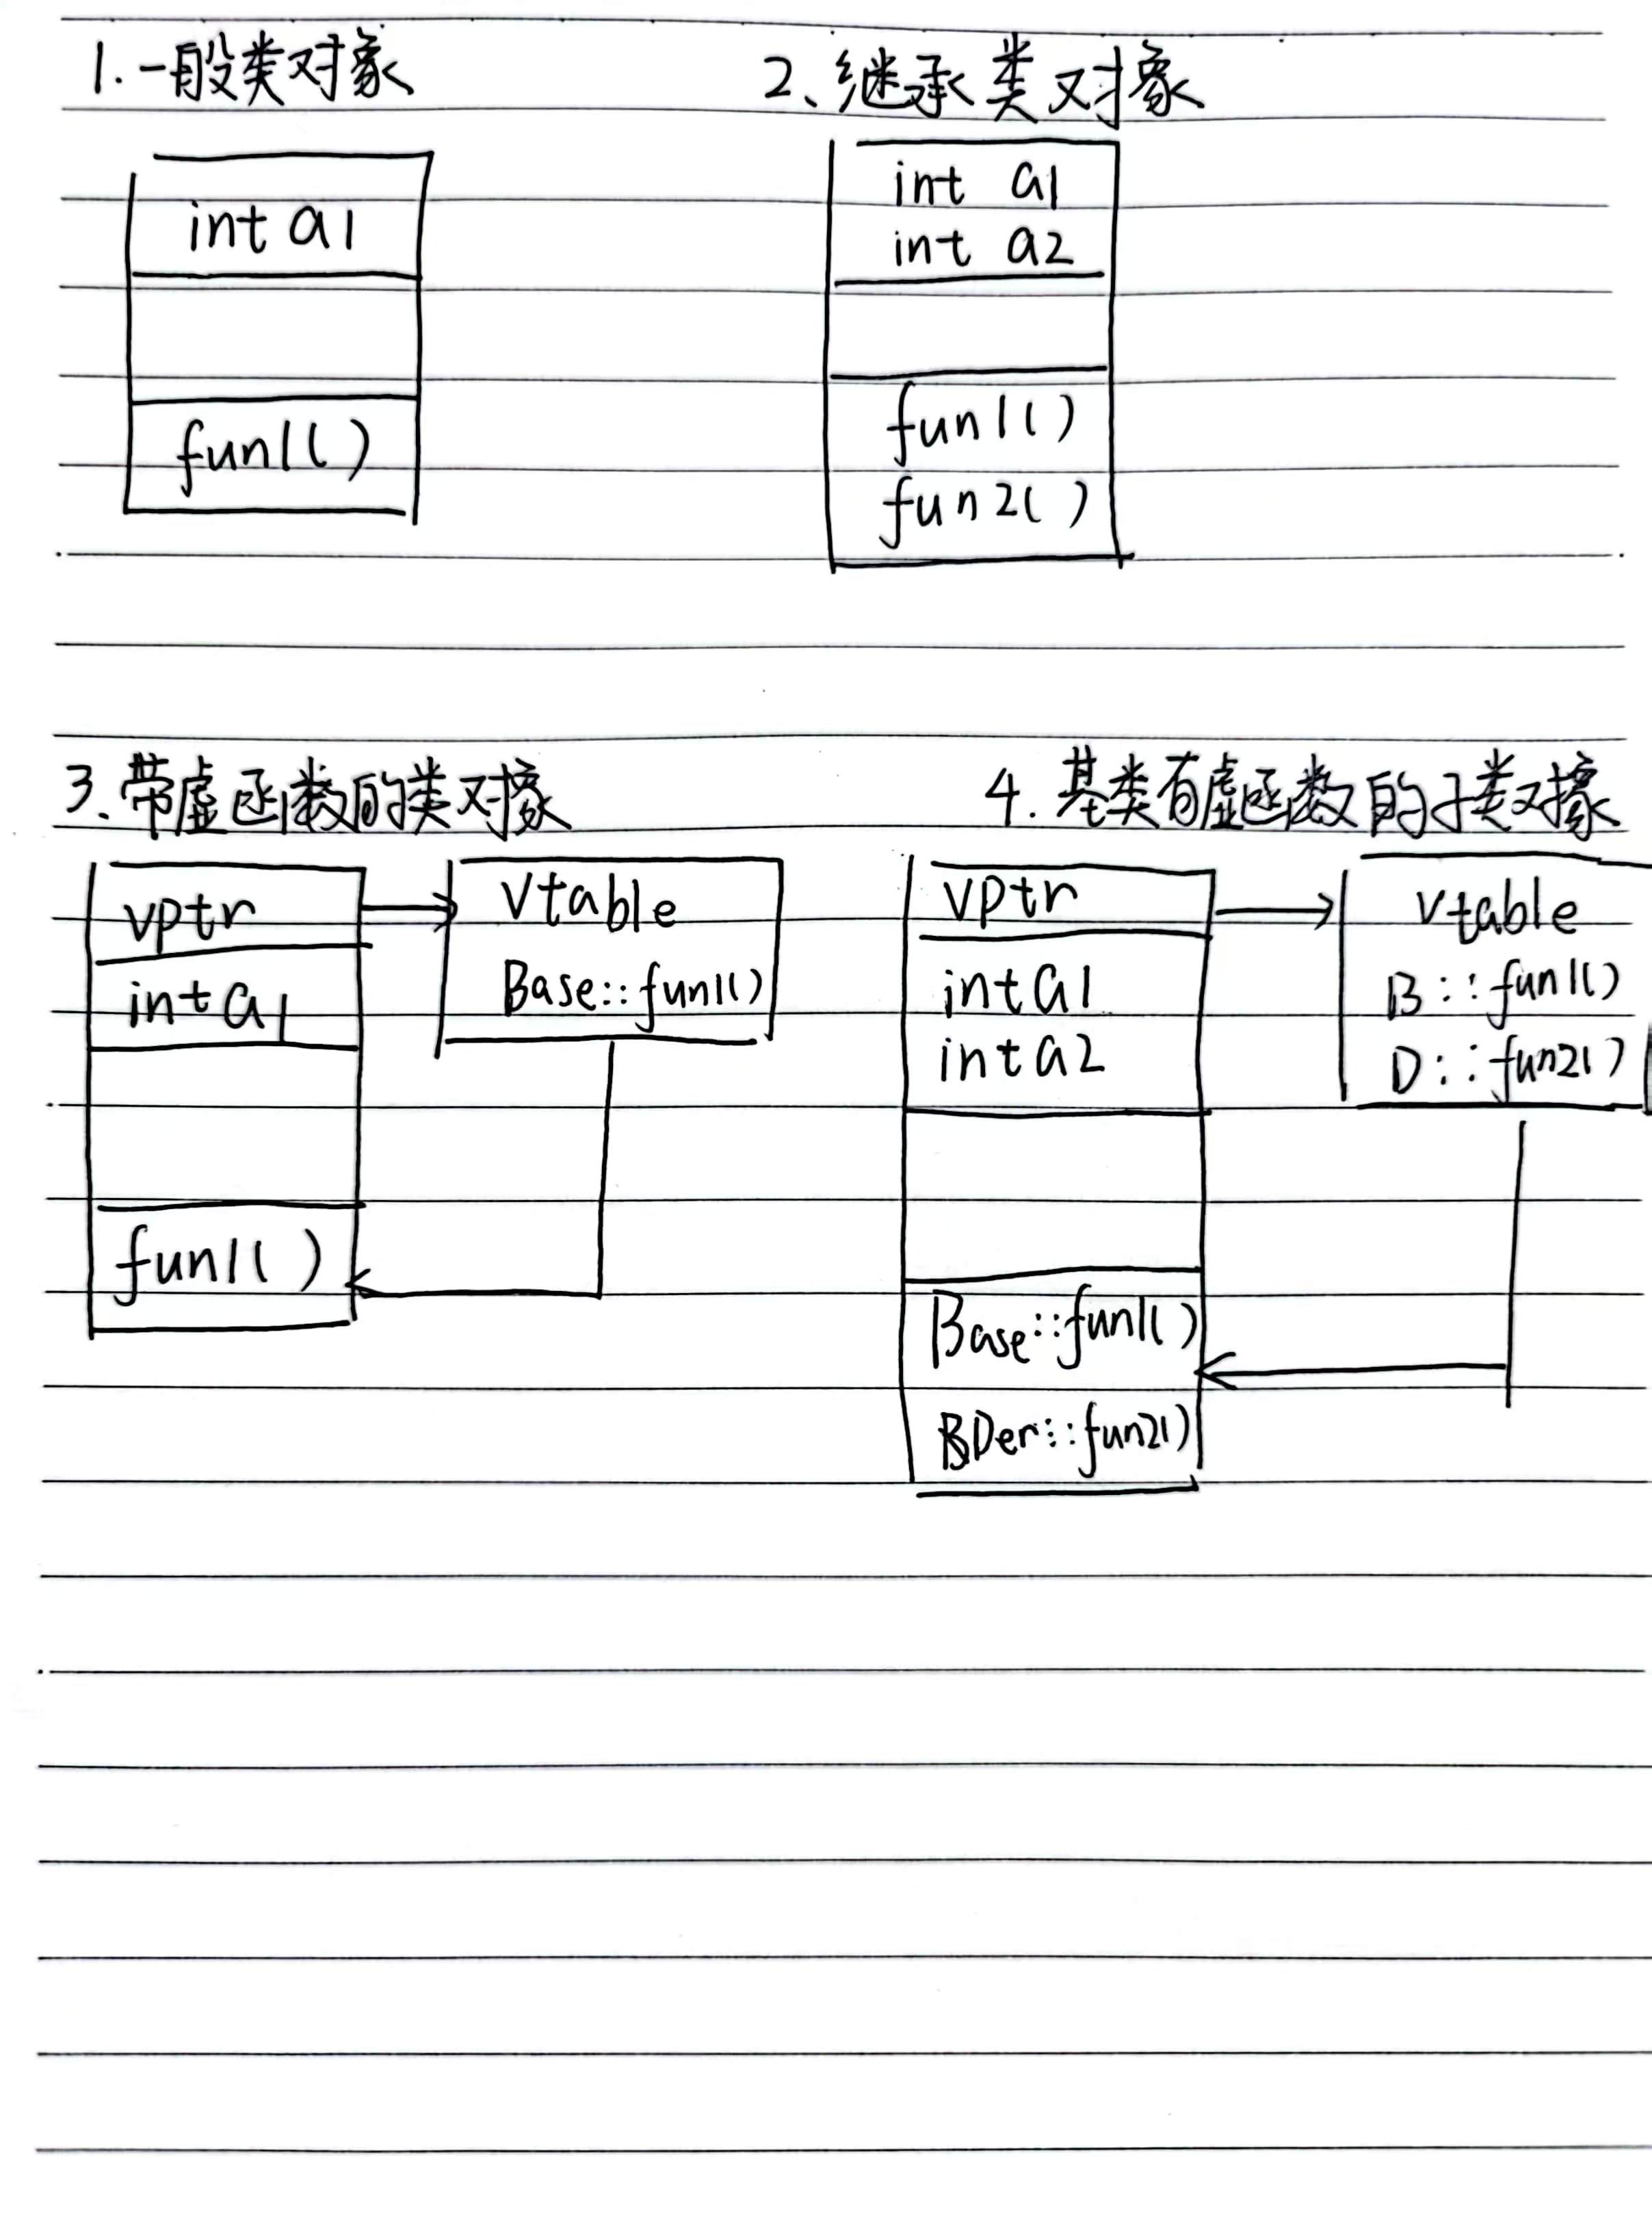 1.一般类对象
int a1
fun1()
2、继承类对象
int a1
int a2
fun1()
fun2()
3.带虚函数的类对象
vptr
int a1
fun1()
vtable
Base::fun1()
4.基类有虚函数的子类对象
vptr
int a1
int a2
Base::fun1()
Der::fun2()
vtable
B::fun1()
D::fun2()